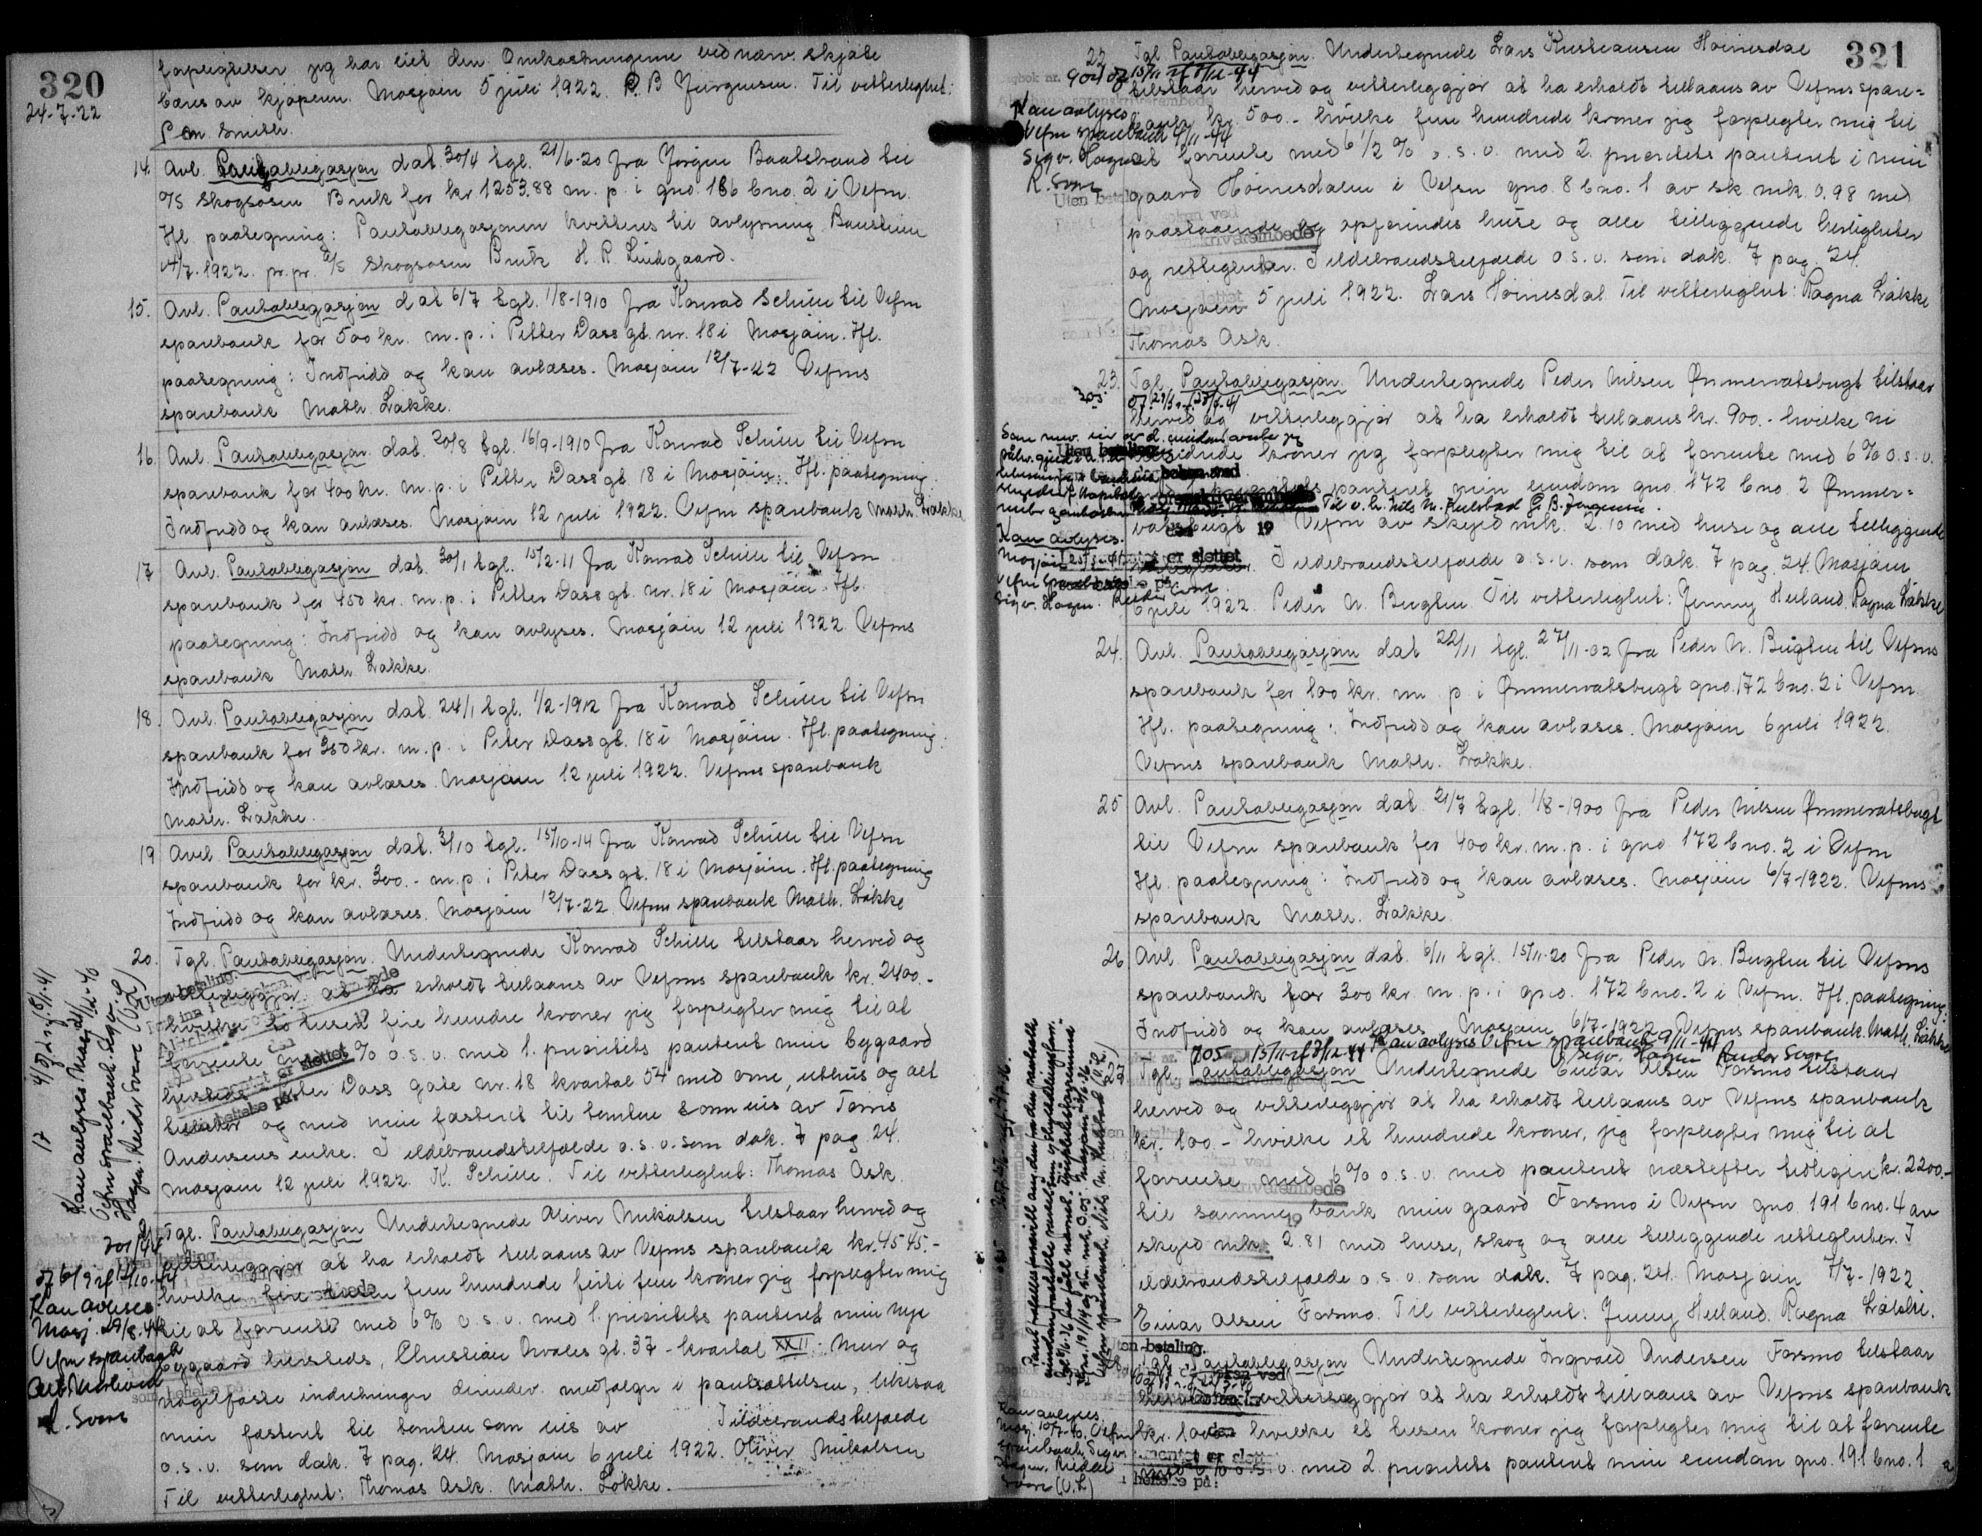 320
24-7-22
forpligtelser jeg har eiet den. Omkostningerne ved nærv. skjøte
bæres av kjøperen. Mosjøen 5 juli 1922. P. B Jürgensen. Til vitterlighet:
Smith.
14. Avl. Pantobligasjon dat. 30/4 tgl. 21/6-20 fra Jørgen Baatstrand til
A/S Skogsosen Bruk for kr 1253.88 m. p. i gno. 186 bno. 2 i Vefsn.
Hfl. paategning: Pantobligasjonen kvitteres til avlysning
14/7-1922. pr.pr. A/S Skogsosen Bruk H. R. Lindgaard.
15. Avl. Pantobligasjon dat 6/7 tgl. 1/8-1910 fra Konrad Schüle til Vefsn
sparebank for 500 kr. m. p. i Petter Dass gt. nr. 18 i Mosjøen. Hfl.
paategning: Indfridd og kan avlæses. Mosjøen 12/7-22 Vefsns
sparebank Math. Løkke.
16. Avl. Pantobligasjon dat. 20/8 tgl. 16/9-1910 fra Konrad Schüle til Vefsn
sparebank for 400 kr. m. p. i Petter Dass gt 18 i Mosjøen. Hfl. paategning:
Indfridd og kan avlæses. Mosjøen 12 juli 1922. Vefsn sparebank Math. Løkke
17 Avl. Pantobligasjon dat. 30/1 tgl. 15/2-11 fra Konrad Schüle til Vefsn
sparebank for 450 kr. m. p. i Petter Dass gt. nr. 18 i Mosjøen. Hfl.
paategning: Indfridd og kan avlyses. Mosjøen 12 juli 1922 Vefsns
sparebank Math Løkke.
18. Avl. Pantobligasjon dat. 24/1 tgl. 1/2-1912 fra Konrad Schüle til Vefsn
sparebank for 350 kr. m. p. i Peter Dass gt. 18 i Mosjøen. Hfl. paategning:
Indfridd og kan avlæses. Mosjøen 12 juli 1922. Vefsns sparebank
Math. Løkke.
19 Avl Pantobligasjon dat. 3/10 tgl. 15/10-14 fra Konrad Schüle til Vefsn
sparebank for kr. 300.- m. p. i Peter Dass gt. 18 i Mosjøen. Hfl. paategning
Indfridd og kan avlæses. Mosjøen 12/7-22 Vefsns sparebank Math. Løkke
20. Tgl. Pantobligasjon. Undertegnede Konrad Schüle tilstaar herved og
vitterliggjør at ha erholdt tillaans av Vefsns sparebank kr. 2400.-
hvilke to tusen fire hundre kroner jeg forpligter mig til at
forrente med % o. s. v. med 1. prioritets panteret min bygaard
hersteds Peter Dass gate nr. 18 kvartal 54 med ovne, uthus og alt
tilbehør og med min fæsteret til tomten som eies av Tønis
Andersens enke. I ildebrandstilfælde o. s. v. som dok. 7 pag. 24.
Mosjøen 12 juli 1922. K. Schüle. Til vitterlighet: Thomas Ask.
Kan avlyses Mosj 21/12-40
Vefsn sparebank. Sigv.
Hagen. Reidar Svare (O.L)
Tgl. Pantobligasjon Undertegnede Oliver Mikalsen tilstaar herved og
vitterliggjør at ha erholdt tillaans av Vefsns sparebank kr. 4545.-
hvilke fire tusen fem hundrede førti fem kroner jeg forpligter mig
til at forrente med 6% o. s. v. med 1. prioritets panteret min nye
bygaard hersteds, Christian Qvales gt. 37 - kvartal XXII. Mur og
nagelfaste indretninger derunder medfølger i pantsættelsen, likesaa
min fæsteret til tomten som eies av I ildebrandstilfælde
o. s. v. som dok. 7 pag. 24. Mosjøen 6 juli 1922. Oliver Mikalsen
Til vitterlighet: Thomas Ask. Math. Løkke.
Kan avlyses
Mosj. 29/8-44
Vefsn sparebank
R. Svare
321
22 Tgl. Pantobligasjon. Undertegnede Lars Kristiansen Høinesdal
tilstaar herved og vitterliggjør at ha erholdt tillaans av Vefsns spare-
bank kr. 500.- hvilke fem hundrede kroner jeg forpligter mig til
at forrente med 6 1/2 % o. s. v. med 2. prioritets panteret i min
gaard Høinesdalen i Vefsn gno. 8 bno. 1 av sk mk. 0.98 med
paastaaende og opførendes huse og alle tilliggende herligheter
og rettigheter. I ildebrandstilfælde o s. v. som dok. 7 pag. 24.
Mosjøen 5 juli 1922. Lars Høinesdal. Til vitterlighet: Ragna Løkke
Thomas Ask.
Kan avlyses
Vefsn sparebank 9/11-44
Sigv. Hagen
R. Svare
23. Tgl. Pantobligasjon. Undertegnede Peder Nilsen Ømmervatsbugt tilstaar
herved og vitterliggjør at ha erholdt tillaans kr. 900.- hvilke ni
hundrede kroner jeg forpligter mig til at forrente med 6% o. s. v.
panteret min eiendom gno. 172 bno 2 Ømmer-
vatsbugt i Vefsn av skyld mk. 2.10 med huse og alle tilliggende
I ildebrandstilfælde o. s. v. som dok. 7 pag. 24. Mosjøen
6 juli 1922 Peder N. Bugten. Til vitterlighet: Jenny Heiland. Ragna Løkke
Kan avlyses.
Mosjøen
Vefsn sparebank
Sigv. Hagen. Reidar Svare
24. Avl. Pantobligasjon dat 22/11 tgl. 27/11-02 fra Peder N. Bugten til Vefsns
sparebank for 100 kr. m. p. i Ømmervatsbugt gno. 172 bno. 2 i Vefsn
Hfl. paategning: Indfridd og kan avlæses. Mosjøen 6 juli 1922.
Vefsns sparebank Math. Løkke.
25 Avl. Pantobligasjon dat. 21/7 tgl. 1/8-1900 fra Peder Nilsen Ømmervatsbugt
til Vefsn sparebank for 400 kr. m. p. i gno 172 bno. 2 i Vefsn
Hfl. paategning: Indfridd og kan avlæses. Mosjøen 6/7-1922. Vefsns
sparebank Math. Løkke.
26 Avl. Pantobligasjon dat. 6/11 tgl. 15/11-20 fra Peder N. Bugten til Vefsns
sparebank for 300 kr. m. p. i gno. 172 bno. 2 i Vefsn. Hfl. paategning:
Indfridd og kan avlæses. Mosjøen 6/7-1922. Vefsns sparebank. Math. Løkke
Kan avlyses Vefsn sparebank 9/11-44
Sigv. Hagen Reidar Svare
27 Tgl. Pantobligasjon Undertegnede Einar Olsen Forsmo tilstaar
herved og vitterliggjør at ha erholdt tillaans av Vefsns sparebank
kr. 100.- hvilke et hundrede kroner, jeg forpligter mig til at
forrente med 6% o. s. v. med panteret næstefter tidligere kr. 2200.-
til samme bank min gaard Forsmo i Vefsn gno. 191 bno. 4 av
skyld mk. 2.81 med huse, skog og alle tilliggende rettigheter. I
ildebrandstilfælde o. s. v. som dok. 7 pag. 24. Mosjøen 7/7-1922
Einar Olsen Forsmo. Til vitterlighet: Jenny Heiland. Ragna Løkke.
Tgl. Pantobligasjon Undertegnede Ingvald Andersen Forsmo tilstaar
herved og vitterliggjør at ha erholdt tillaans av Vefsns sparebank
kr. 1000.- hvilke et tusen kroner jeg forpligter mig til at forrente
med 6% o. s. v. med 2. prioritets panteret min eiendom gno. 191 bno. 1
Kan avlyses.
Mosj. 10/7-40. Vefsn
sparebank. Sigv.
Hagen. Reidar
Svare (O.L)